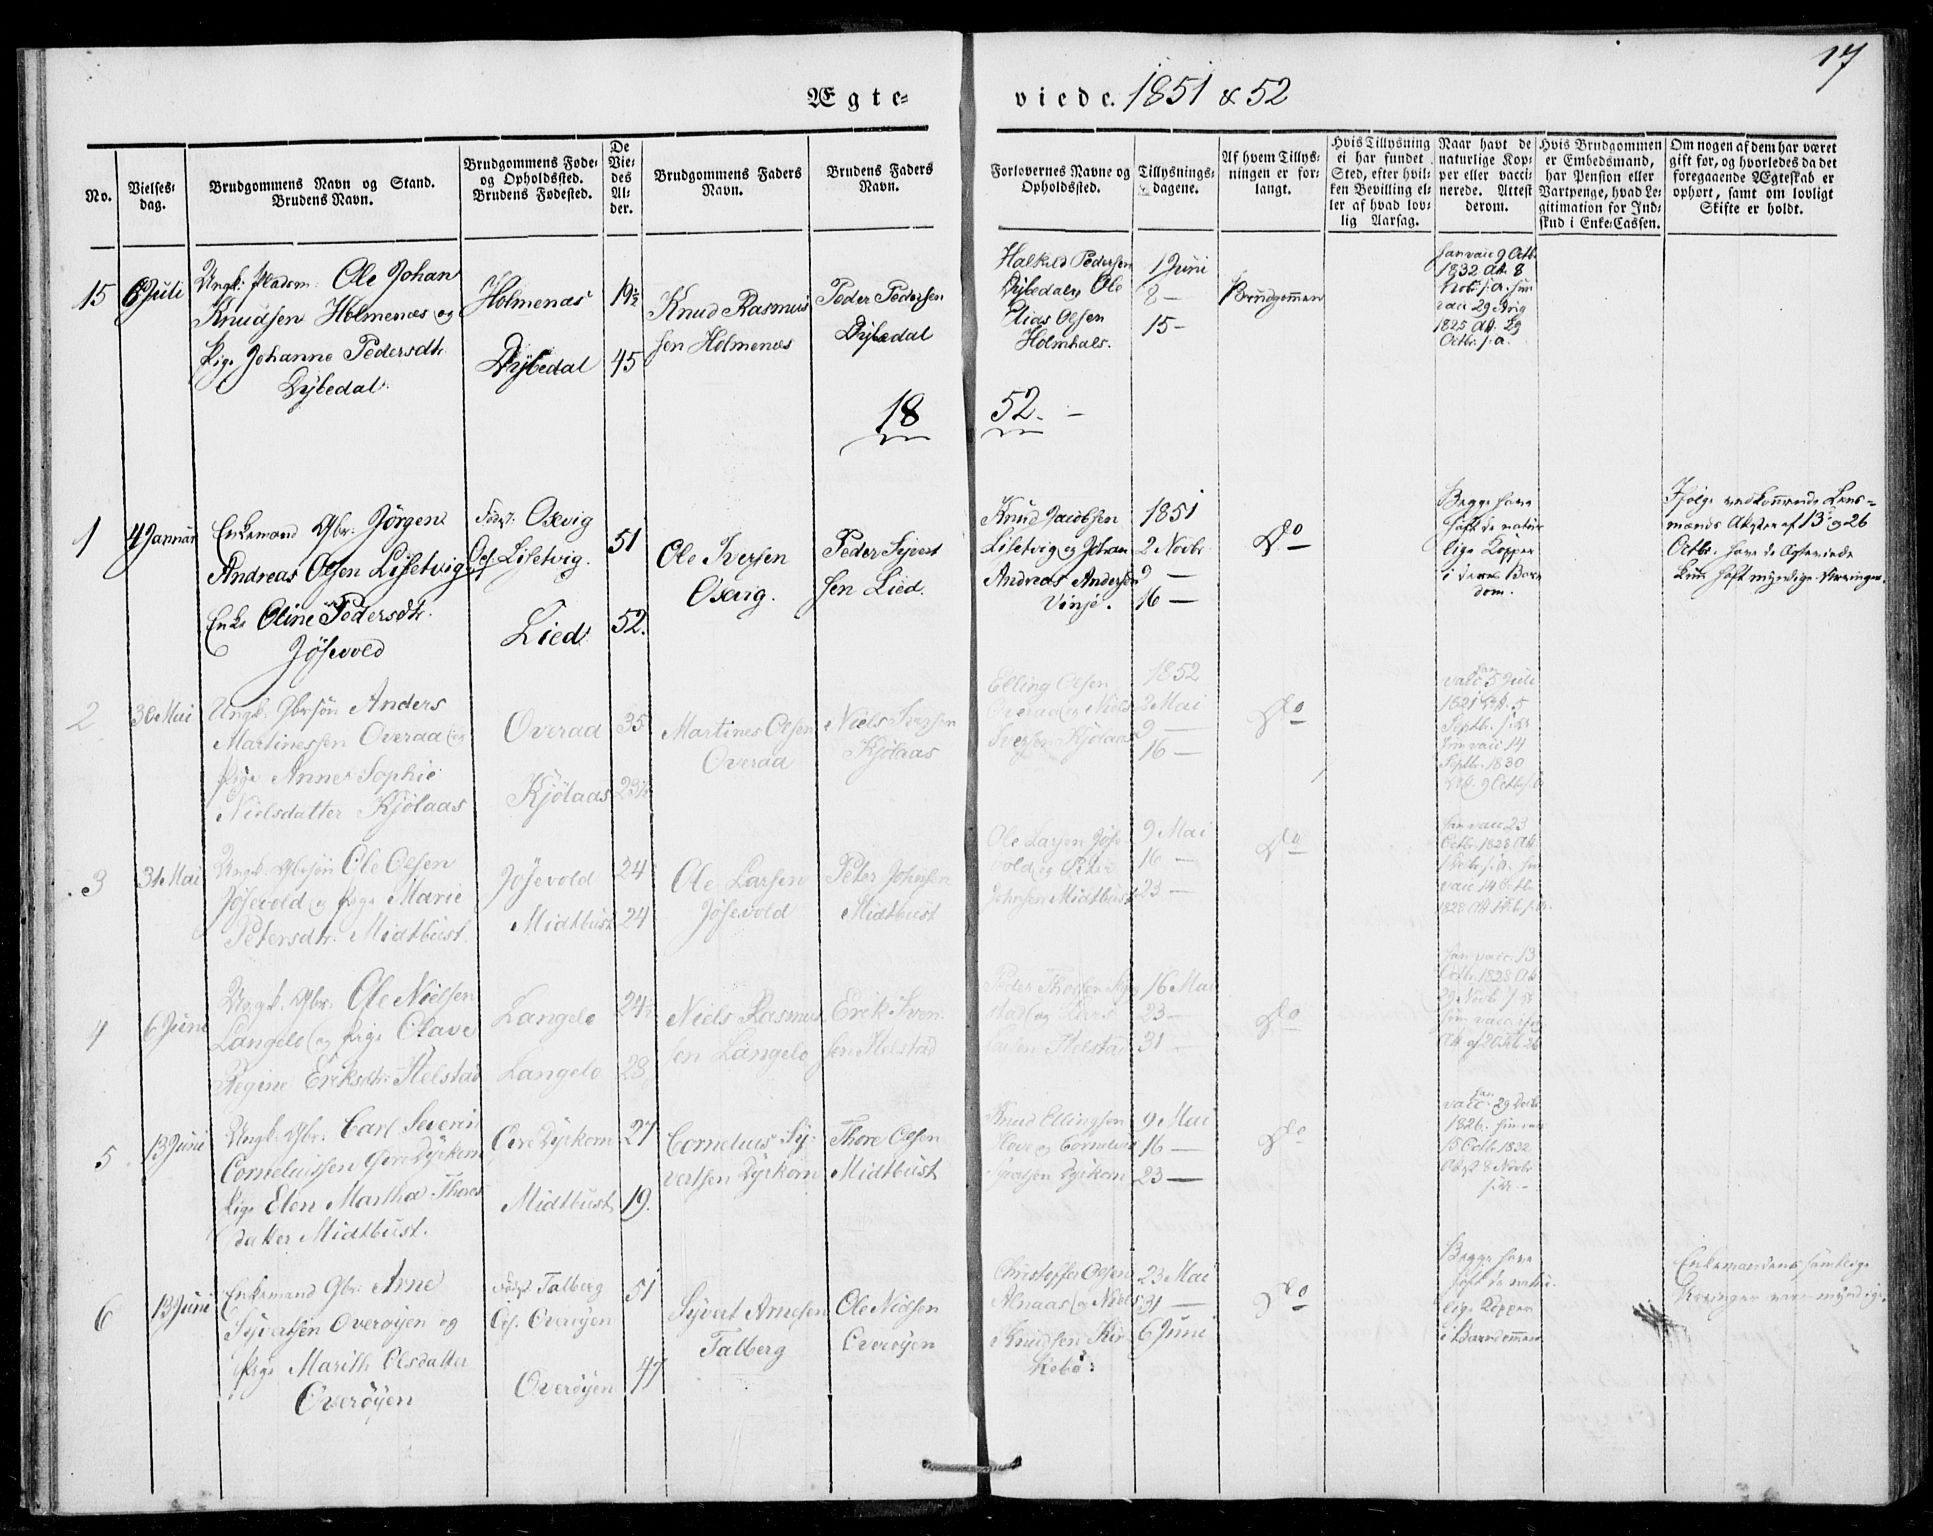 17
Ægte-
viede. 1851 & 52
No.
Vielses-
dag.
Brudgommens Navn og Stand.
Brudens Navn.
Brudgommens Føde-
og Opholdssted.
Brudens Fødested.
De
Vie-
des
Al-
der.
Brudgommens Faders
Navn.
Brudens Faders
Navn.
Forlovernes Navne og
Opholdssted.
Tillysnings-
dagene.
Af hvem Tillys-
ningen er for-
langt.
Hvis Tillysning
ei har fundet
Sted, efter hvil-
ken Bevilling el-
ler af hvad lov-
lig Aarsag.
Naar havt de
naturlige Kop-
per eller vacci-
nerede. Attest
derom.
Hvis Brudgommen
er Embedsmand,
har Pension eller
Vartpenge, hvad Le-
gitimation for Ind-
skud i Enke-Cassen.
Om nogen af dem har været
gift før, og hvorledes da det
foregaaende Ægteskab er
ophørt, samt om lovligt
Skifte er holdt.
15
6 Juli
Ungk: Pladsm: Ole Johan
Knudsen Holmenæs og
Pige Johanne Pedersdtr.
Dybedal.
Holmenæs
Dybedal
19½
45
Knud Rasmus
sen Holmenæs
Peder Pedersen
Dybedal
Halkild Pedersen
Dybedal, Ole
Elias Olsen
Holmhals.
1 Juni
8 —
15 —
Brudgommen
1832 Att. 8
Novb. s.a. hun
vacc 29
1825 Att. 29
Octbr. s.a.
18
52. -
1
4 Januar
Enkemand Gbr. Jörgen
Andreas Olsen Lisetvig og
Enke Oline Pedersdtr.
Jösevold
Födst. Oxevig
Oph. Lisetvig.
Lied
51
52.
Ole Iversen
Oxevig.
Peder Syvert
sen Lied.
Knud Jacobsen
Lisetvig og Johan
Andreas Andersen
Vinje.
1851
2 Novbr.
9 —
16 —
Do
Begge have
haft de natur
lige Kopper
i deres Barn
dom.
Ifölge vedkommende Lens-
mænds Attester af 13 og 26
Octbr. have de Ægteviede
kun haft myndige Arvinger.
2
30 Mai
Ungk. Gbrsön Anders
Martinessen Overaa og
Pige Anne Sophie
Nielsdatter Kjölaas
Overaa
Kjölaas
35
23½
Martines Olsen
Overaa
Niels Iversen
Kjölaas
Elling Olsen
Overaa og Niels
Iversen Kjölaas
1852
2 Mai
9 —
16 —
Do
vacc 5 Juli
1821 Att. 5
Septbr. s.a.
hun vacc 14
Septbr. 1830
Att. 9 Octb. s.a.
3
31 Mai
Ungk. Gbrsön Ole Olsen
Jösevold og Pige Marie
Petersdtr. Midtbust.
Jösevold
Midtbust
24
24
Ole Larsen
Jösevold
Peter Johnsen
Midtbust
Ole Larsen Jöse-
vold og Peter
Johnsen Midtbust
9 Mai
16 —
23 —
Do
han vacc 23
Octbr. 1828 Att.
vacc 14 Octb.
4
6 Juni
Ungk. Gbr. Ole Nielsen
Langelo og Pige Olave
Regine Eriksdtr. Helstad
Langelo
Langelo
24
28
Niels Rasmus
sen Langelo
Erik Iver-
sen Helstad
stad og Lars
16 Mai
23 —
31 —
Do
han vacc. 13
Octbr. 1828 Att
29 Novbr. s.a.
5
13 Juni
Ungk. Gbr. Carl Severin
Corneliussen Övre Dyrkorn
Pige Elen Martha Thores
datter Midtbust.
Övre Dyrkorn
Midtbust
27
19.
Cornelius Sy-
vertsen Dyrkorn
Thore Olsen
Midtbust
Knud Ellingsen
Hove og Cornelius
Syvertsen Dyrkorn
9 Mai
16 —
23 —
Do
1826. hun vacc
15 Octb. 1832
Attst 8 Novbr.
s.a. -
6
13 Juni
Enkemand Gbr. Arne
Syvertsen Overöyen og
Pige Marith Olsdatter
Overöyen
Födst. Talberg
Oph. Overöyen
Overöyen
51
47
Syvert Arnesen
Talberg
Ole Nielsen
Overöyen
Christoffer Olsen
Alnaas og Niels
Knudsen Kir-
kebö.
23 Mai
31 —
6 Juni
Do
Begge have
haft de natur-
lige Kopper
i Barndommen
Enkemandens samtlige
Arvinger vare myndige.